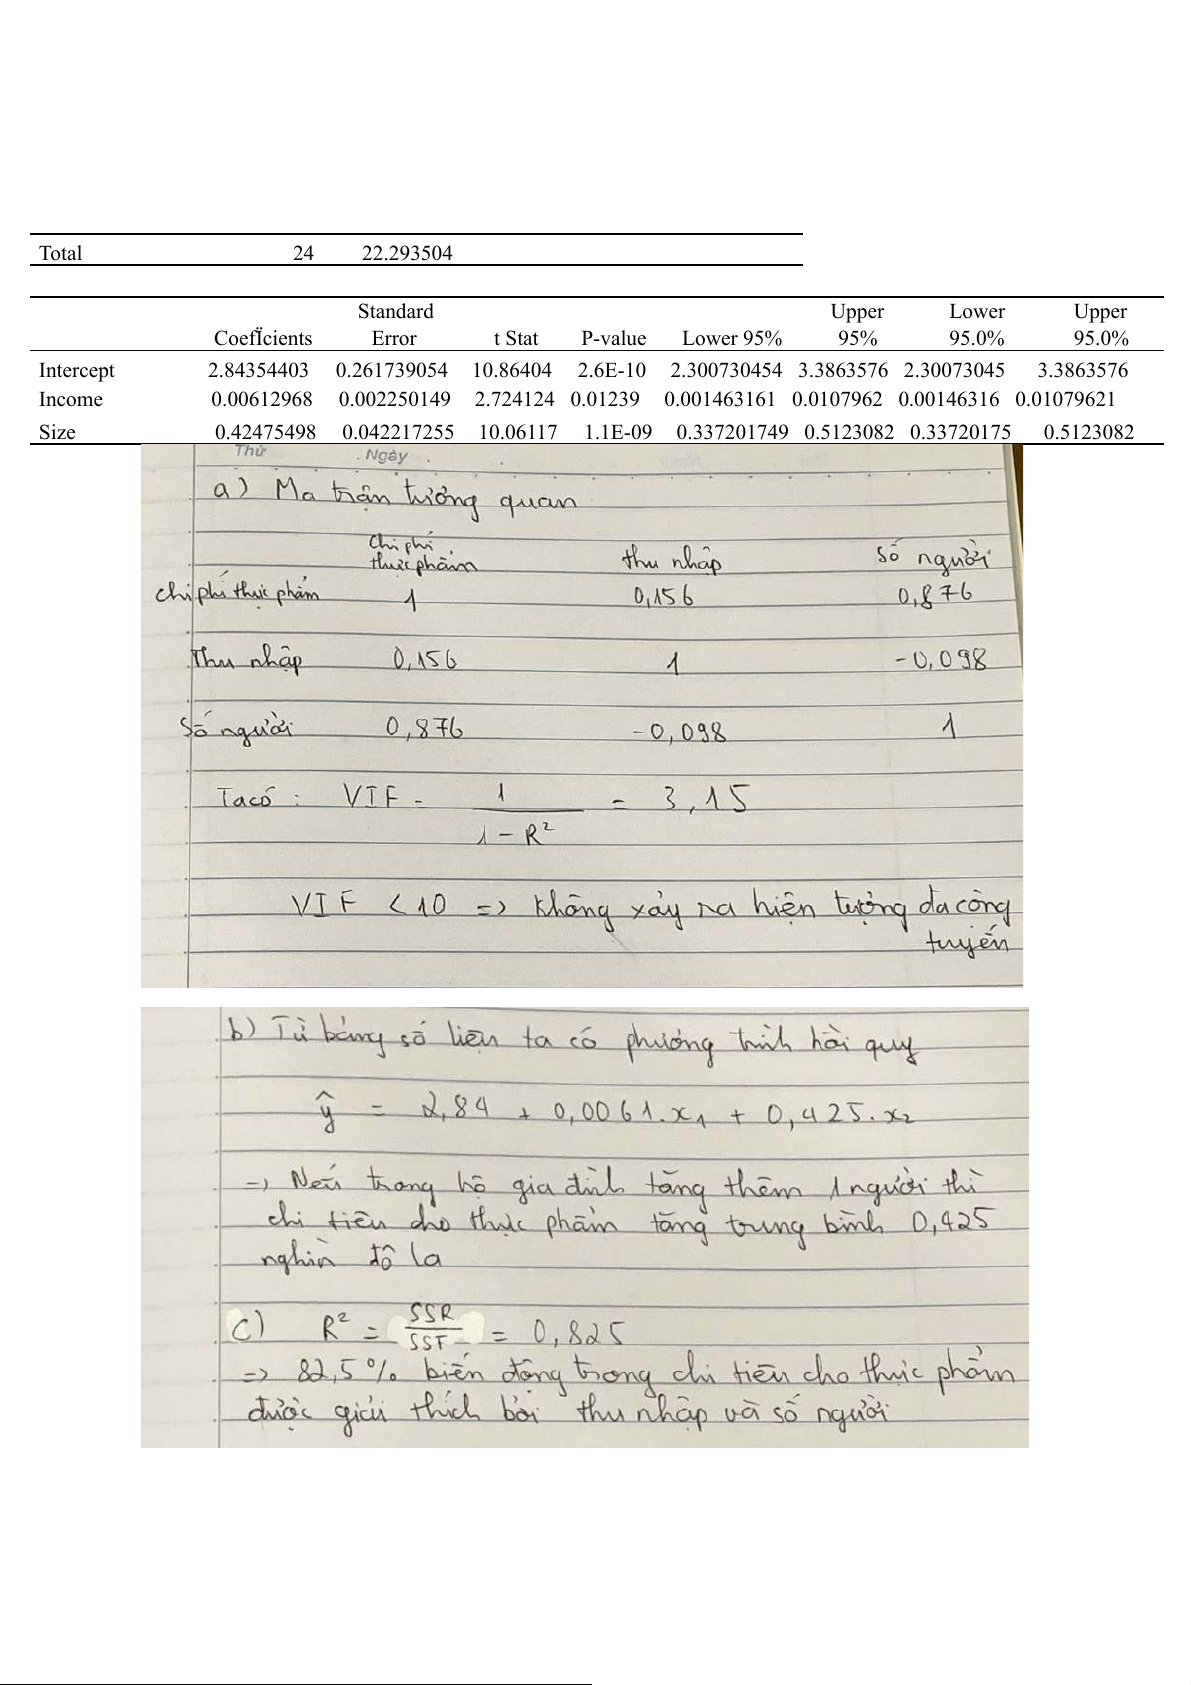 Total 24 22.293504
Coefficients Standard Error t Stat P-value Lower 95% Upper 95% Lower 95.0% Upper 95.0%
Intercept 2.84354403 0.261739054 10.86404 2.6E-10 2.300730454 3.3863576 2.30073045 3.3863576
Income 0.00612968 0.002250149 2.724124 0.01239 0.001463161 0.0107962 0.00146316 0.01079621
Size 0.42475498 0.042217255 10.06117 1.1E-09 0.337201749 0.5123082 0.33720175 0.5123082
Thứ Ngày
a) Ma trận tương quan
Chi phí thực phẩm thu nhập số người
chi phí thực phẩm 1 0,156 0,876
Thu nhập 0,156 1 -0,098
Số người 0,876 -0,098 1
Ta có : VIF = 1 / (1 - R²) = 3,15
VIF < 10 => không xảy ra hiện tượng đa cộng
tuyến
b) Từ bảng số liệu ta có phương trình hồi quy
ŷ = 2,84 + 0,0061.x₁ + 0,425.x₂
=> Nếu trong hộ gia đình tăng thêm 1 người thì
chi tiêu cho thực phẩm tăng trung bình 0,425
nghìn đô la
c) R² = SSR / SST = 0,825
=> 82,5% biến động trong chi tiêu cho thực phẩm
được giải thích bởi thu nhập và số người